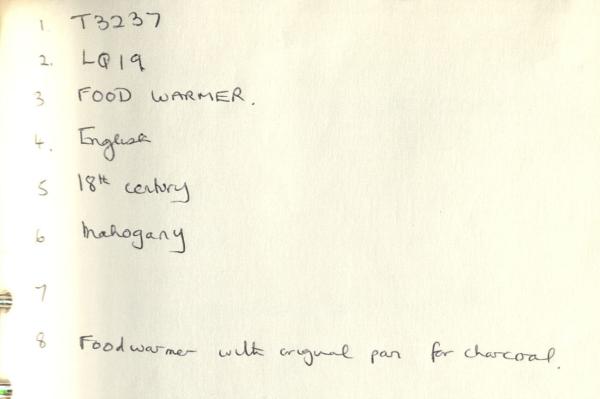 1. T3237
2. LQ19
3 FOOD WARMER.
4. English
5 18th century
6 Mahogany
7
8 Foodwarmer with original pan for charcoal.